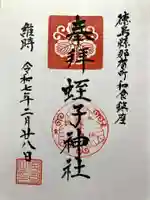 徳島縣那賀町和食鎮座
奉拝
蛭子神社
維時
令和七年二月廿八日